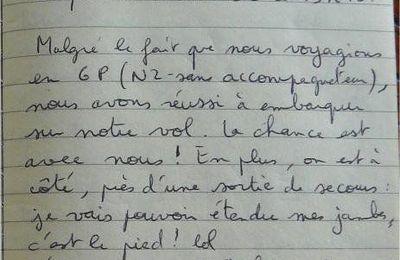 Malgré le fait que nous voyagions
en GP (N2-sans accompagnateur),
nous avons réussi à embarquer
sur notre vol. La chance est
avec nous ! En plus, on est à
côté, près d'une sortie de secours :
je vais pouvoir étendre mes jambes,
c'est le pied ! lol